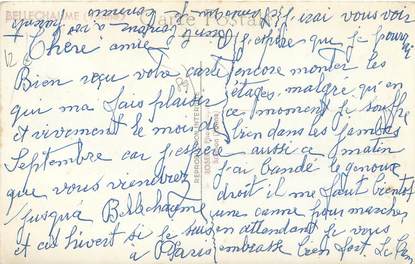 BELLECHAUME
Carte Postale
Chère amie
Bien reçu votre carte
qui ma fais plaisir
et vivement le moi de
Septembre car j'espère
que vous viendrez
jusqu'à Bellechaume
et cet hivert si je suis
à Paris
j'irai vous voir
j'espère que je pourrai
encore monter les
étages, malgré qu'en
ce moment je souffre
bien dans les jambes
aussi ce matin
j'ai bandé le genoux
droit il me faut bientôt
une canne pour marcher
en attendant je vous
embrasse bien fort.